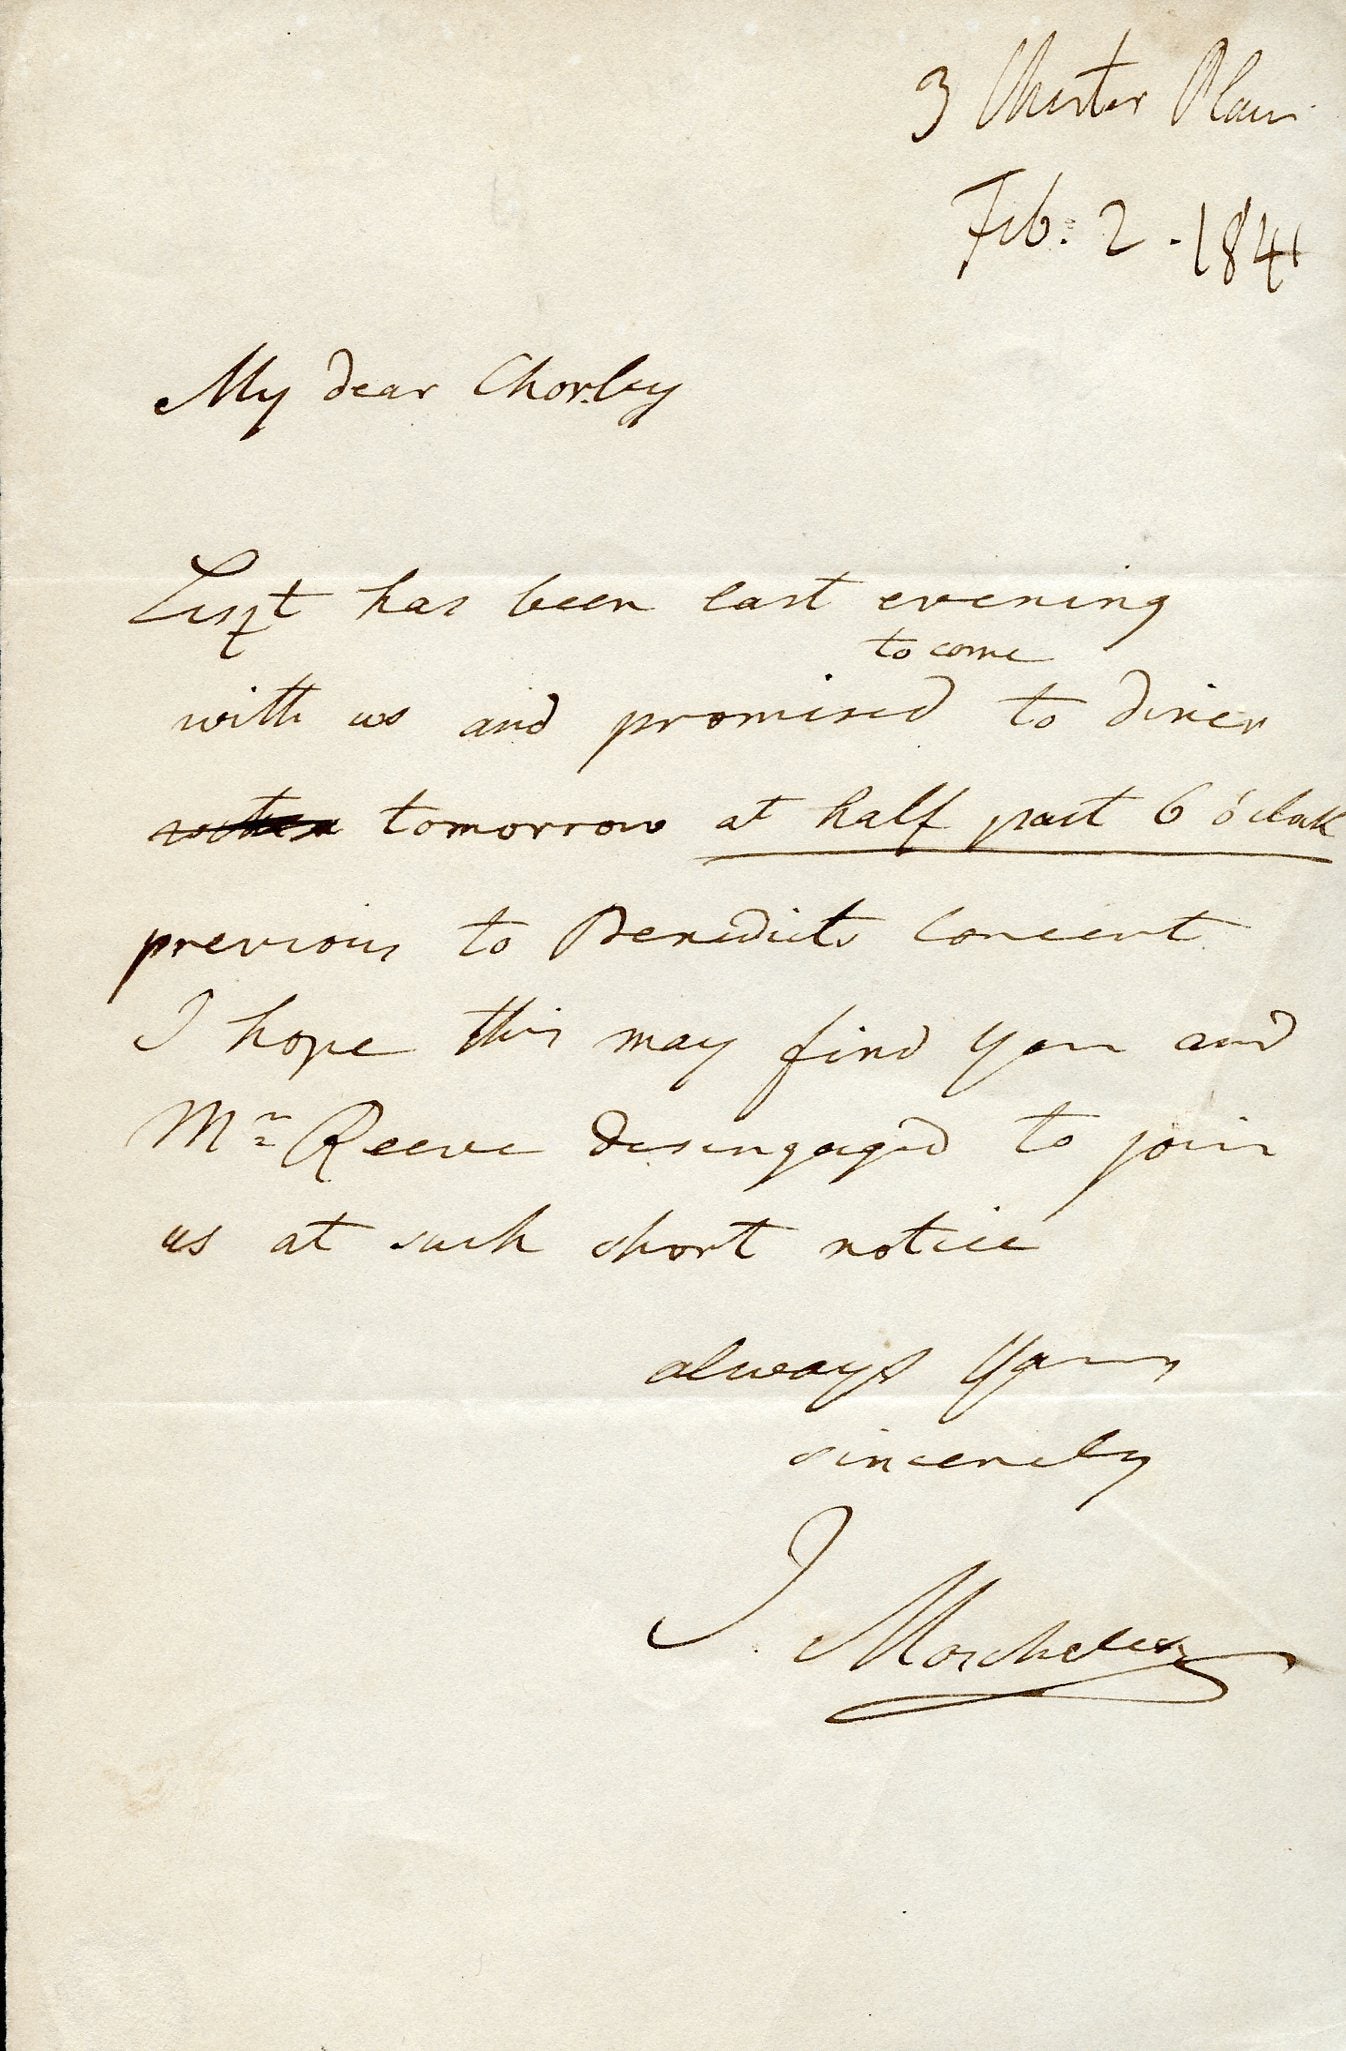 3 Chester Place
Feb: 2 - 1841
My dear Chorley
Liszt has been last evening
to come
with us and promised to diner
tomorrow at half past 6 o'clock
previous to Benedicts Concert
I hope this may find you and
Mr Reeve disengaged to join
us at such short notice
always Yours
sincerely
J. Moscheles